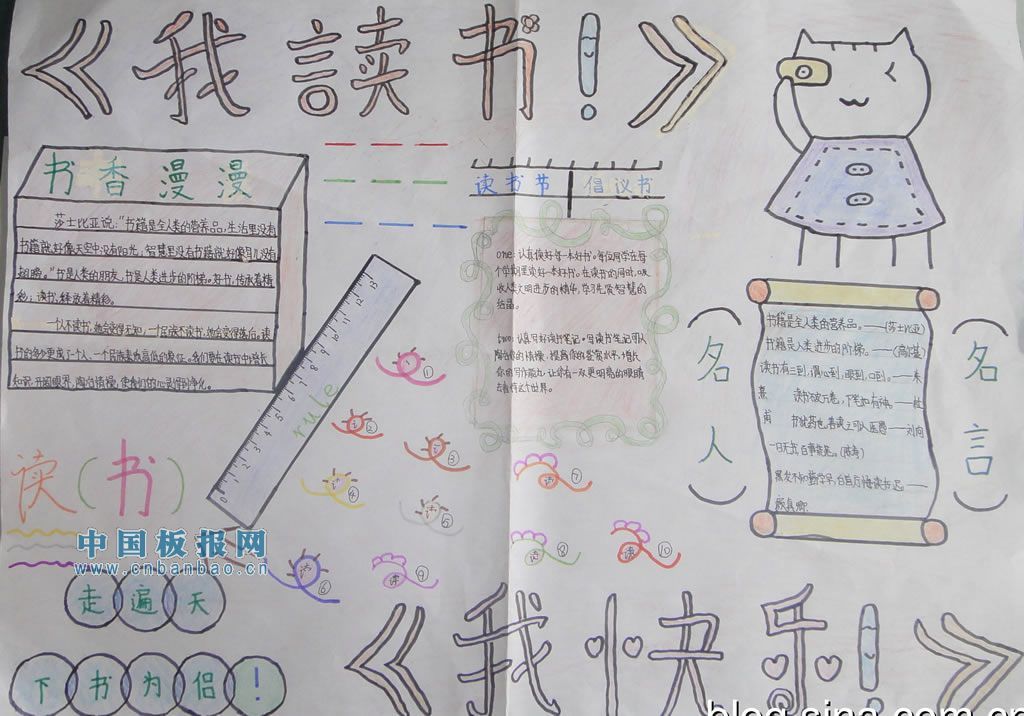 《我读书！》
书香漫漫
莎士比亚说："书籍是全人类的营养品,生活里没有
书籍就好像天空中没有阳光,智慧里没有书籍就好像鸟儿没有
翅膀。"书是人类的朋友,书是人类进步的阶梯。好书,
读书,
一人不读书,
知识,开阔眼界,陶冶情操,使我们的心灵得到净化。
读书节 倡议书
one:认真读好每一本好书。每位同学在每
个学期里读好一本好书。在读书的同时,吸
收人类文明进步的精华,学习先贤智慧的
结晶。
two:认真写好读书笔记。写读书笔记可以
陶冶你的情操,提高你的鉴赏水平,增长
你的写作能力,让你有一双更明亮的眼睛
去看待这个世界。
(名人)
书籍是全人类的营养品。——(莎士比亚)
书籍是人类进步的阶梯。——(高尔基)
读书有三到,谓心到,眼到,口到。——朱
熹 读书破万卷,下笔如有神。——杜
甫 书犹药也,善读之可以医愚——刘向
一日无书,百事荒废。(陈寿)
黑发不知勤学早,白首方悔读书迟。——
颜真卿
(名言)
0 1 2 3 4 5 6 7 8 9 10 11 12 13
rule
①
②
③
④
⑤
⑥
⑦
读 ⑧
读 ⑨
读 ⑩
读(书)
中国板报网
www.cnbanbao.cn
走遍天
下书为侣!
《我快乐！》
blog.sina.com.cn